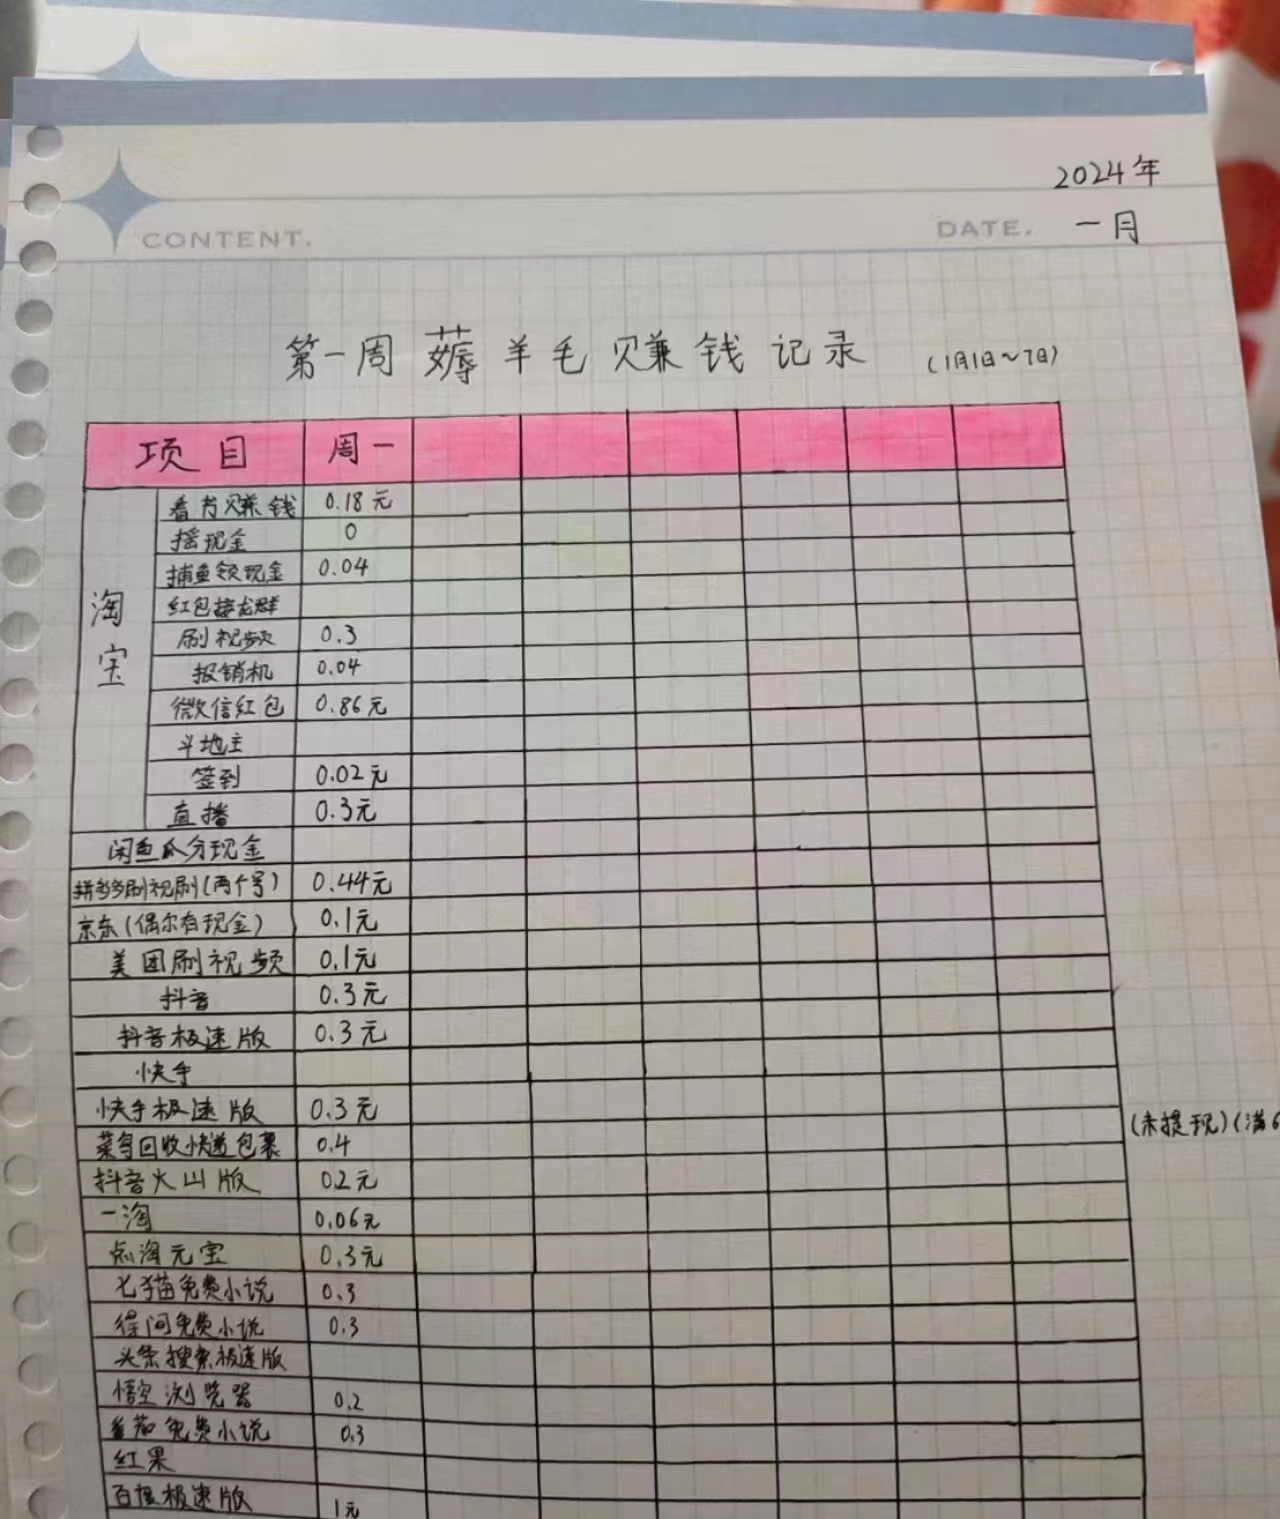 2024年
CONTENT.
DATE. 一月
第一周薅羊毛赚钱记录 (1月1日~7日)
项目 周一
淘宝
看书赚钱 0.18元
摇现金 0
捕鱼领现金 0.04
红包接龙群
刷视频 0.3
报销机 0.04
微信红包 0.86元
斗地主
签到 0.02元
直播 0.3元
闲鱼瓜分现金
拼多多刷视刷(两个号) 0.44元
京东(偶尔有现金) 0.1元
美团刷视频 0.1元
抖音 0.3元
抖音极速版 0.3元
快手
快手极速版 0.3元
(未提现)(满6
菜鸟回收快递包裹 0.4
抖音火山版 0.2元
一淘 0.06元
点淘元宝 0.3元
七猫免费小说 0.3
得间免费小说 0.3
头条搜索极速版
悟空浏览器 0.2
番茄免费小说 0.3
红果
百度极速版 1元